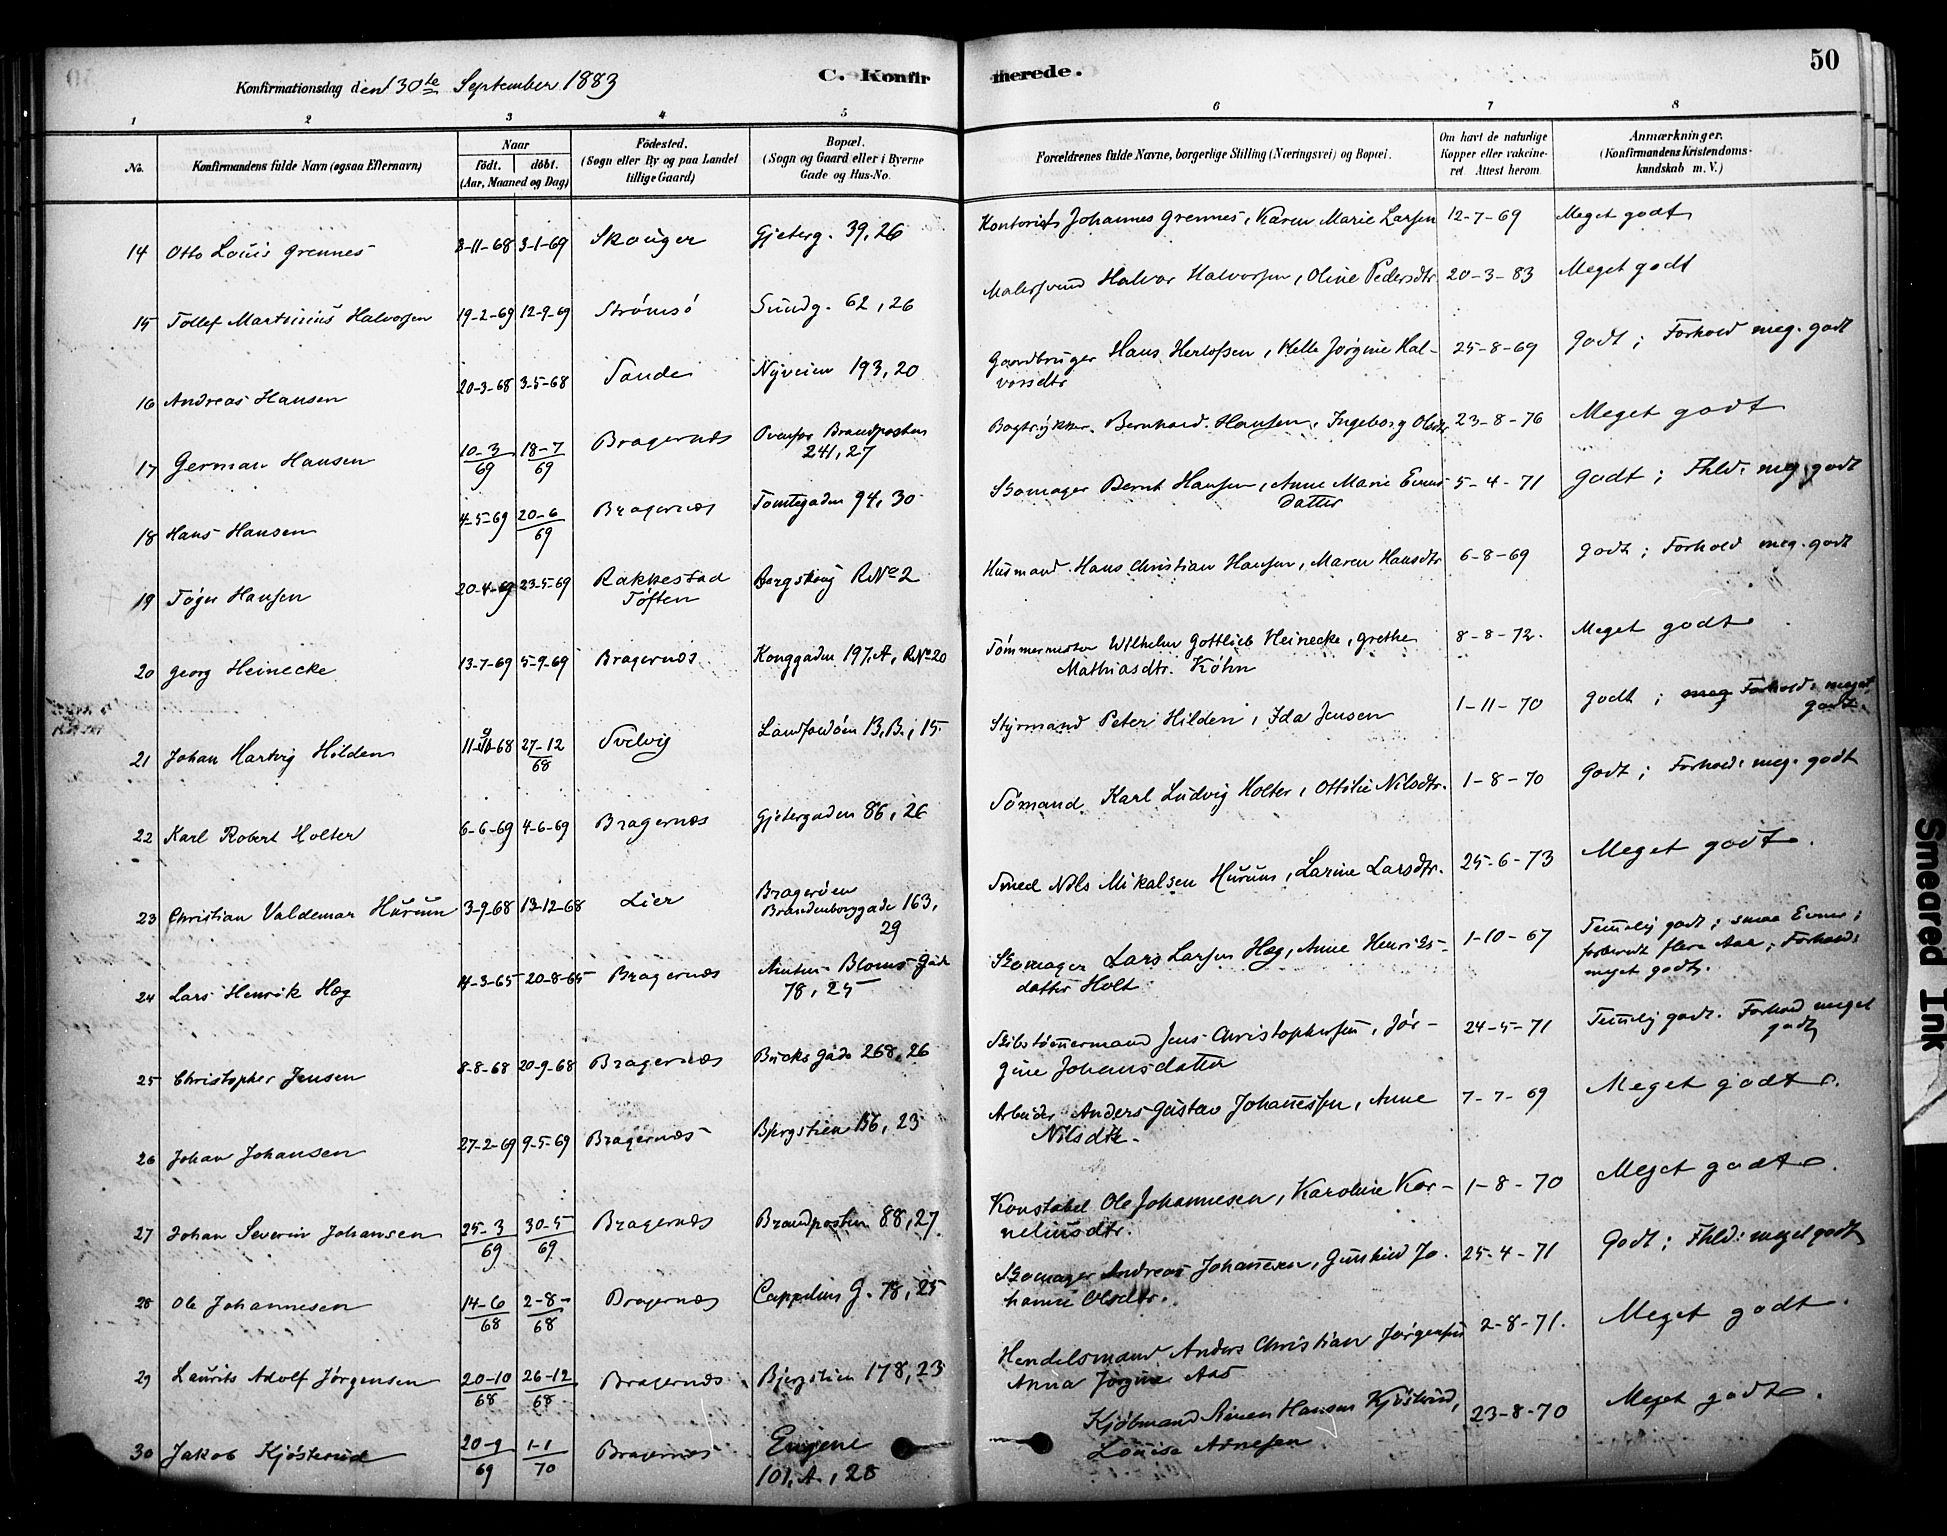 50
Konfirmationsdag den 30te September 1883
C. Konfirmerede.
1 2 3 4 5 6 7 8
No. Konfirmandens fulde Navn (ogsaa Efternavn) Naar født. døbt. (Aar, Maaned og Dag) Fødested. (Sogn eller By og paa Landet tillige Gaard) Bopæl. (Sogn og Gaard eller i Byerne Gade og Hus-No. Forældrenes fulde Navne, borgerlige Stilling (Næringsvei) og Bopæl. Om havt de naturlige Kopper eller vakcineret. Attest herom. Anmærkninger. (Konfirmandens Kristendomskundskab m. V.)
14 Otto Louis Grennes 3-11-68 3-1-69 Skouger Gjeterg. 39, 26 Kontorist Johannes Grennes, Karen Marie Larsen 12-7-69 Meget godt
15 Tollef Martinius Halvorsen 19-2-69 12-9-69 Strømsö Sundg. 62, 26 Malersvend Halvor Halvorsen, Oline Pedersdtr. 20-3-83 Meget godt
16 Andreas Hansen 20-3-68 3-5-68 Sande Nyveien 193, 20 Gaardbruger Hans Herlofsen, Helle Jörgine Hal-
vorsdtr 25-8-69 Godt; Forhold meg. godt
17 German Hansen 10-3/69 18-7/69 Bragernæs Ovenfor Brandposten
241, 27 Bogtrykker Bernhard Hansen, Ingeborg Olsdtr 23-8-76 Meget godt
18 Hans Hansen 4-5-69 20-6/69 Bragernæs Tomtegaden 94, 30 Skomager Bernt Hansen, Anne Marie Evens
datter 5-4-71 Godt; Fhld: meg. godt
19 Töger Hansen 20-4-69 23-5-69 Rakkestad
Töften Bergskoug R.No 2 Husmand Hans Christian Hansen, Maren Hansdtr 6-8-69 Godt; Forhold meg. godt
20 Georg Heinecke 13-7-69 5-9-69 Bragernæs Konggaden 197, A, R.No 20 Tömmermester Wilhelm Gottlieb Heinecke, Grethe
Mathiasdtr. Köhn 8-8-72. Meget godt
21 Johan Hartvig Hilden 11-9-68 27-12/68 Svelvig Landfaldöen 13, B., 15. Styrmand Peter Hilden, Ida Jensen 1-11-70 Godt; meg Forhold: meget
godt.
22 Karl Robert Holter 6-6-69 4-6-69 Bragernæs Gjetergaden 86, 26 Sömand Karl Ludvig Holter, Ottilie Nilsdtr. 1-8-70 Godt; Forhold: meg. godt
23 Christian Valdemar Hurum 3-9-68 13-12-68 Lier Bragerøen
Brandenborggade 163,
29 Smed Nils Mikalsen Hurum, Larine Larsdtr. 25-6-73 Meget godt.
24 Lars Henrik Hæg 14-3-65 20-8-65 Bragernæs Bloms Gade
78, 25 Skomager Lars Larsen Hæg, Anne Henriks-
datter Holt 1-10-67 Temelig godt; smaa Evner;
forberedt flere Aar; Forhold:
meget godt.
25 Christopher Jensen 8-8-68 20-9-68 Bragernæs Bucks Gade 268, 26 Skibstömmermand Jens Christophersen, Jör-
gine Johansdatter 24-5-71 Temelig godt. Forhold meget
godt
26 Johan Johansen 27-2-69 9-5-69 Bragernæs Bjergstien 156, 23 Arbeider Anders Gustav Johannessen, Anne
Nilsdtr. 7-7-69 Meget godt.
27 Johan Severin Johansen 25-3/69 30-5/69 Bragernæs Brandposten 88, 27 Konstabel Ole Johannesen, Karoline Kor-
neliusdtr. 1-8-70 Meget godt.
28 Ole Johannesen 14-6/68 2-8-/68 Bragernæs Cappelens G. 78, 25 Skomager Andreas Johannesen, Gunhild Jo-
hanne Olsdtr. 25-4-71 Godt; Fhld: meget godt
29 Laurits Adolf Jørgensen 20-10/68 26-12/68 Bragernæs Bjergstien 178, 23 Handelsmand Anders Christian Jørgensen
Anna Jørgine Aas 2-8-71. Meget godt.
30 Jakob Kjösterud 20-9/69 1-1/70 Bragernæs Engene
101, A., 28 Kjöbmand Hansen Kjösterud,
Louise Arnesen 23-8-70 Meget godt.
Smeared Ink